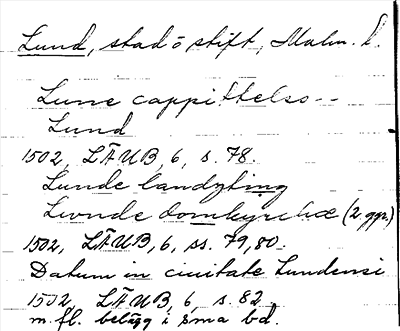 Lund, stad o stift, Malm. l.
Lune cappittelso--
Lund
1502, LÄUB, 6, s. 78.
Lunde landzting
Lwnde domkyrkæ (2 ggr.)
1502, LÄUB, 6, ss. 79, 80.
Datum in ciuitate Lundensi
1502, LÄUB, 6, s. 82.
m. fl. belägg i sma bd.